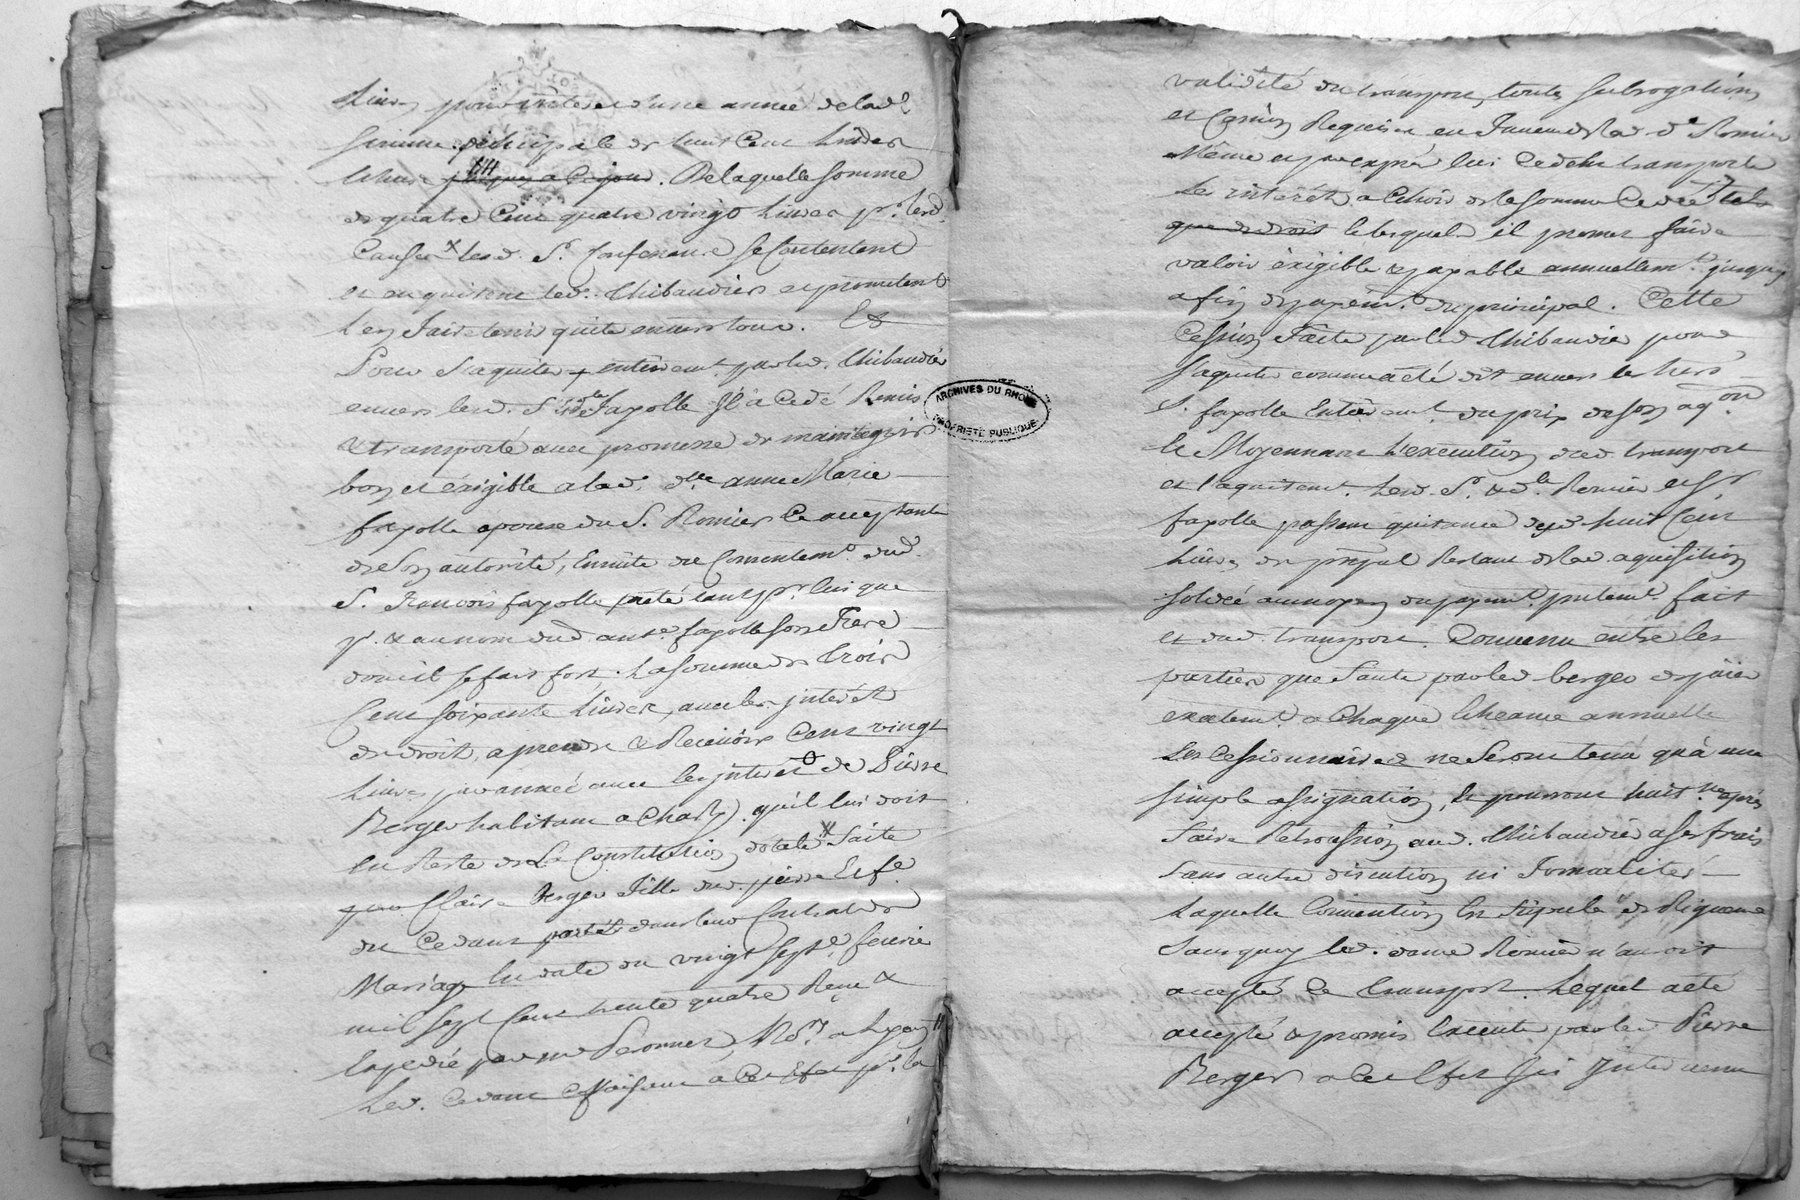 Livres pour intérêts d'une année de lad.
somme principale de huit Cent Livres
De laquelle somme
de quatre Cent quatre vingt Livres pr. lesd.
Causes lesd. Sr. se Contentent
et en quittent led. Thibaudier et promettent
L'en faire tenir quitte envers tous. Et
Pour s'aquiter entierem.t par led. Thibaudier
envers lesd. Srs. fayolle Il a Cedé Remis
& transporté avec promesse de maintenir
bon et éxigible a lad. dlle anne Marie
fayolle epouse du S. Romier Ce acceptante
de son autorité, Ensuite du Consentemt. dud.
S. francois fayolle tant pr. lui que
pr. & au nom dud. ant.e fayolle son Frere
dont il se fait fort, La somme de Trois
Cent soixante Livres, avec les interêt
de droit, a prendre & Recevoir Cent vingt
Livres par année avec les interêt de Pierre
Berger habitant a Charly qu'il lui doit
En Reste de La Constitution dotale faite
par Claire Berger fille dud. pierre
du Cedant dans leur Contrat de
Mariage En date du vingt sept fevrier
mil sept Cent trente quatre Reçu &
expedié par me Peronnet, No.re a Lyon
Led. Cedant a Cet Effet pr. la
validité du transport, toutes subrogations
et Cessions Requises en faveur de lad. de Romier
Même et par exprès lui Cede et transporte
Les intérêt a Echoir de la somme Cedée
que de droit lesquels il promet faire
valoir éxigible & payable annuellemt. jusques
a fin de payemt. du principal. Cette
Cession Faite par led. Thibaudier pour
s'aquiter comme a été dit envers les
S. fayolle Entierem.t du prix de son aq.on
& Moyennant L'execution dud. transport
et l'aquitemt. Lesd. Sr. & de. Romier et Sr.
fayolle passent quitance desd. huit Cent
Livres de ppal Restant de lad. aquisition
soldée au moyen du payemt. presentemt. fait
et dud. transport. Convenu entre les
parties que faute par led. berger de païer
exactemt. a Chaque Echeance annuelle
Les Cessionnaires ne seront tenu qu'à une
simple assignation, & pourront huit.ne après
Faire Retrocession aud. Thibaudier a ses frais
sans autre discution ni Formalités
Laquelle Convention Est stipulé de Rigueur
sans quoy lad. dame Romier n'auroit
accepté Ce Transport. Lequel a été
accepté & promis Executer par led. Pierre
Berger a Cet Effet Ici Intervenu
ARCHIVES DU RHÔNE
PROPRIÉTÉ PUBLIQUE